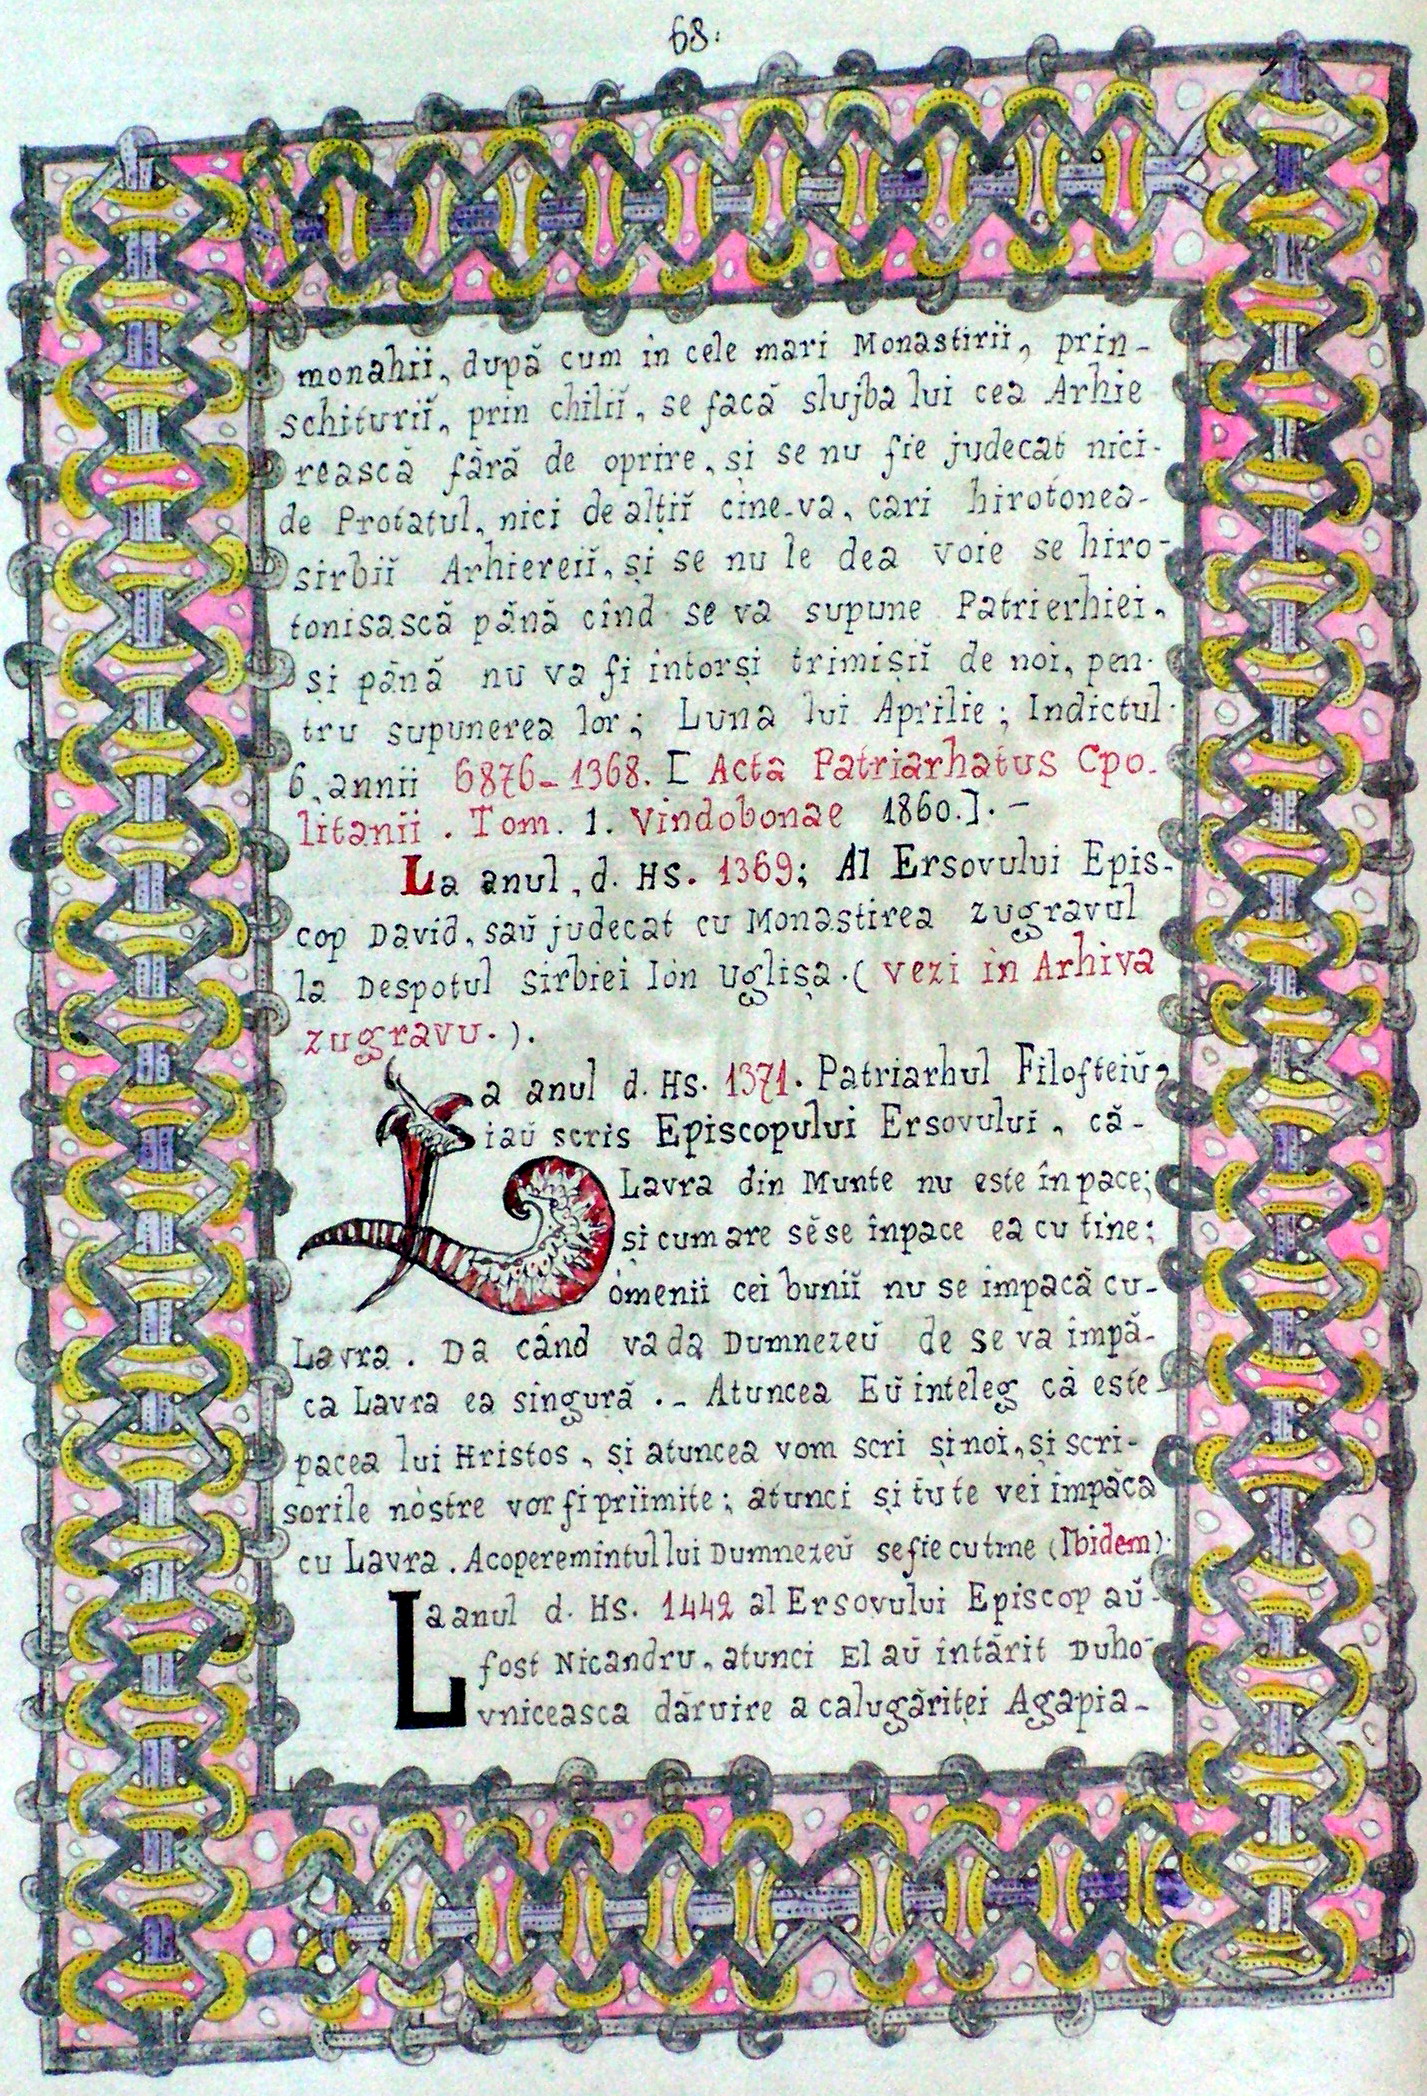 68.
monahii, după cum in cele mari Monastirii, prin-
schiturii̯, prin chilii̯, se facă slujba lui cea Arhie
rească fără de oprire, și se nu fie judecat nici-
de Protatul, nici de alții̯ cine-va, cari hirotonea-
sirbii̯ Arhiereii̯, și se nu le dea voie se hiro-
tonisască până cînd se va supune Patrierhiei,
și până nu va fi intorși trimișii̯ de noi, pen-
tru supunerea lor; Luna lui Aprilie; Indictul
6, annii 6876-1368. [ Acta Patriarhatus Cpo-
litanii. Tom. 1. Vindobonae 1860.]. -
La anul, d. HS. 1369; Al Ersovului Epis-
cop David, saŭ judecat cu Monastirea zugravul
la Despotul Sirbiei Ion Uglișa. ( vezi in Arhiva
zugravu. ).
La anul d. HS. 1371. Patriarhul Filofteiŭ,
iaŭ scris Episcopului Ersovului, că-
Lavra din Munte nu este în pace;
și cum are sĕ se înpace ea cu tine;
omenii cei bunii̯ nu se impacă cu-
Lavra. Da când va da Dumnezeŭ de se va împă-
ca Lavra ea singură. - Atuncea Eŭ inteleg că este
pacea lui Hristos, și atuncea vom scri și noi, și scri-
sorile nòstre vor fi priimite; atunci și tu te vei impăca
cu Lavra. Acoperemintul lui Dumnezeŭ se fie cu tine (Ibidem).
La anul d. HS. 1442 al Ersovului Episcop aŭ-
fost Nicandru, atunci El aŭ intărit Duho-
vniceasca dăruire a calugăriței Agapia-